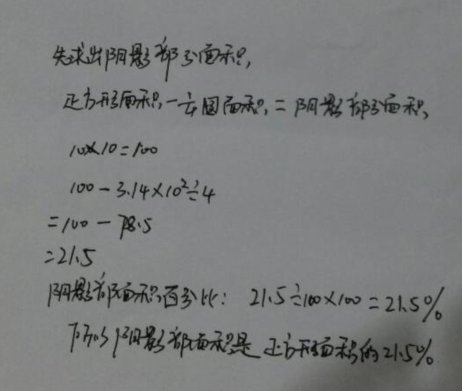 先求出阴影部分面积,
正方形面积-¼圆面积,=阴影部分面积,
10×10=100
100-3.14×10²÷4
=100-78.5
=21.5
阴影部面积百分比: 21.5÷100×100=21.5%
所以阴影部面积是正方形面积的21.5%